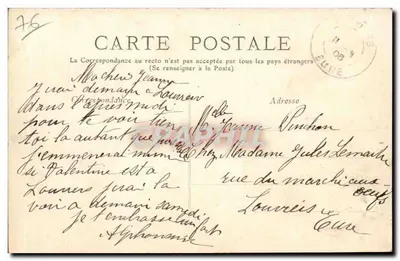 76
CARTE POSTALE
La Correspondance au recto n'est pas acceptée par tous les pays étrangers
(Se renseigner à la Poste)
Correspondance
Adresse
Ma chère Jeanne
J'irai demain à Louviers
dans l'après midi
pour te voir bien
toi la
j'emmenerai
si Valentine est à
Louviers j'irai la
voir à demain samedi
je t'embrasse
Alphonsine
Melle Jeanne
Chez Madame Jules Lemaitre
rue du marché aux
oeufs
Louviers
Eure
EURE